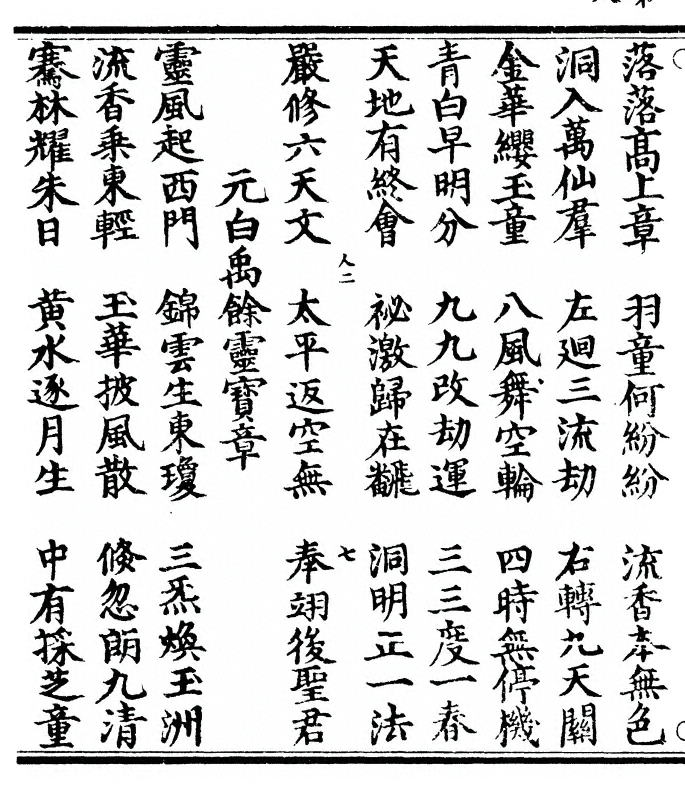 落落高上章　羽童何紛紛　流香奉無色
洞入萬仙羣　左迴三流劫　右轉九天關
金華纓玉童　八風舞空輪　四時無停機
青白早明分　九九改劫運　三三度一春
天地有終會　祕激歸在飜　洞明正一法
人二　七
嚴修六天文　太平返空無　奉翊後聖君
元白禹餘靈寶章
靈風起西門　錦雲生東瓊　三炁煥玉洲
流香乘東輕　玉華披風散　倏忽朗九清
騫林耀朱日　黃水逐月生　中有採芝童